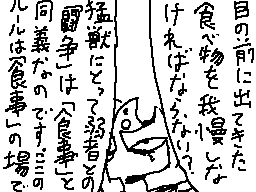 目の前に出てきた
食べ物を我慢しな
ければならない?
猛獣にとって弱者との
闘争」は「食事」と
同義なのです。ここの
ルールは「食事」の場で